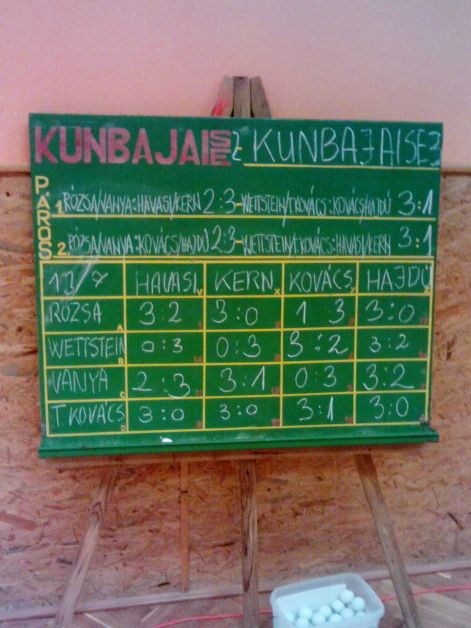 KUNBAJAI SE 2 KUNBAJAI SE 3
PÁROS
1. RÓZSA/VANYA:HAVASI/KERN 2:3-WETTSTEIN/T.KOVÁCS:KOVÁCS/HAJDÚ 3:1
2. RÓZSA/VANYA:KOVÁCS/HAJDÚ 2:3-WETTSTEIN/T.KOVÁCS:HAVASI/KERN 3:1
HAVASI Y KERN X KOVÁCS HAJDÚ
RÓZSA A 3:2 3:0 1 3 3:0
WETTSTEIN B 0:3 0:3 3:2 3:2
VANYA C 2:3 3:1 0:3 3:2
T.KOVÁCS D 3:0 3:0 3:1 3:0